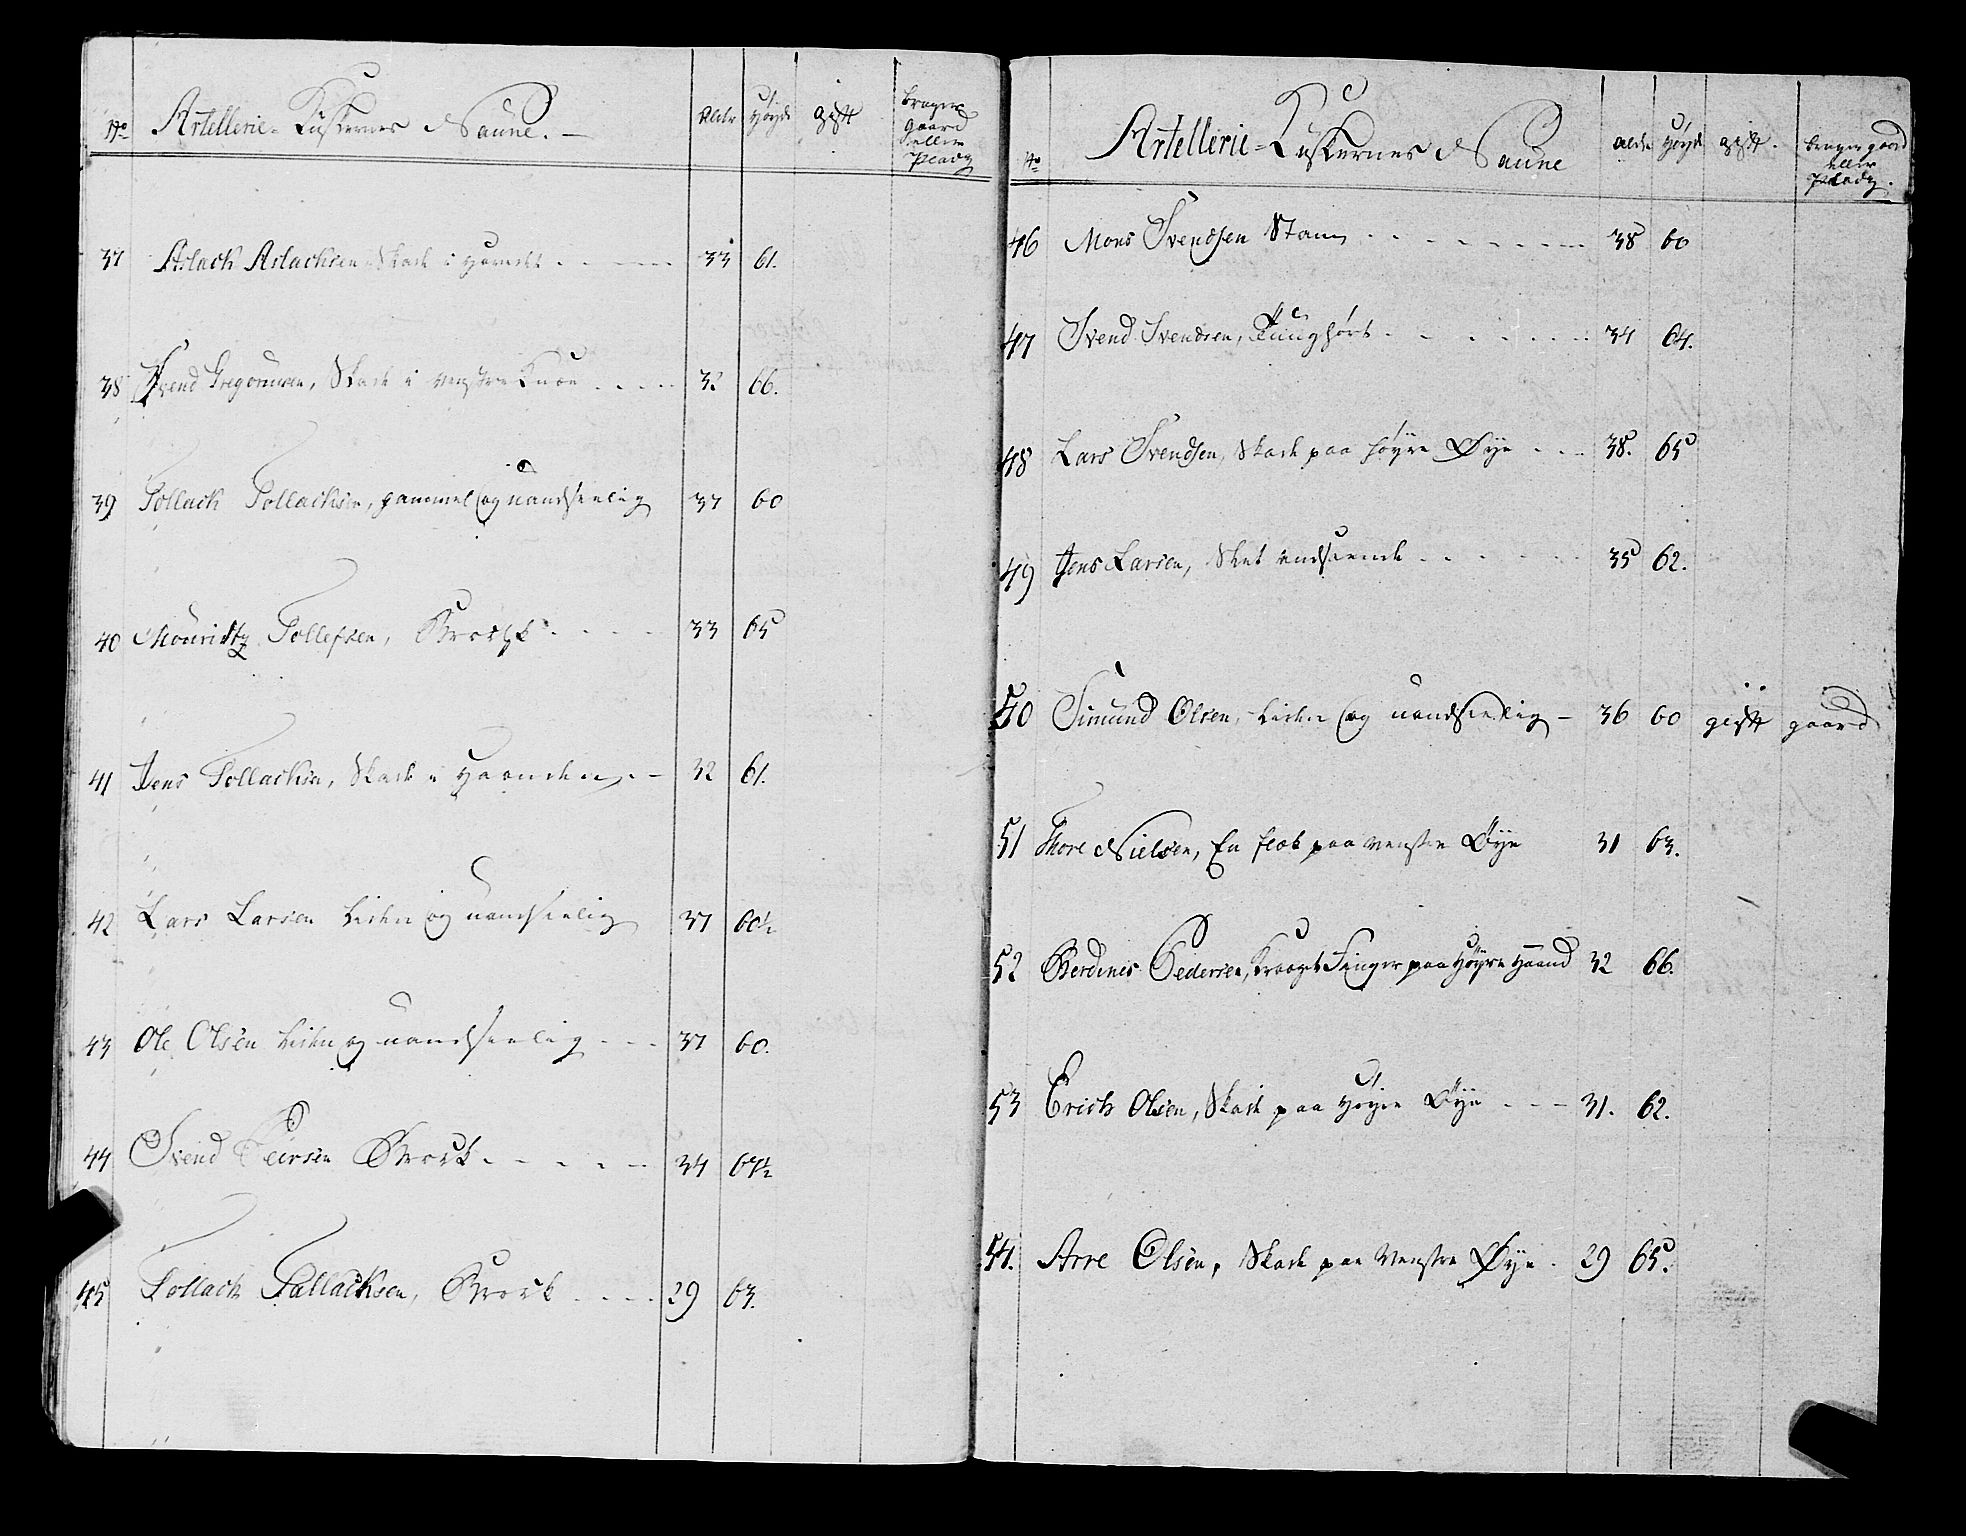 No Artellerie-Kuskernes Naune. Alder Høyde gift bruger
gaard
eller
Pladz
37 Aslach Aslachsen Skade i Hovedet 33 61.
38 Svend Gregoriusen, Skade i venstre Knæe 32 66.
39 Tollack Tollachsen, gammel og uandseelig 37 60
40 Mouridtz Tollefsen, Brock 33 65
41 Jens Tollachsen, Skade i Haanden 32 61.
42 Lars Larsen liden og uandseelig 37 60½
43 Ole Olsen liden og uandseelig 37 60.
44 Svend Peersen Brock 34 67½
45 Tollach Tallacksen, Brock 29 63.
No Artellerie-Kuskernes Naune Alder Høyde gift. bruger gaard
eller
Pladz.
46 Mons Svendsen Stam 38 60
47 Svend Svendsen, Tunghørt 34 64.
48 Lars Svendsen, Skade paa høyre Øye 38. 65
49 Jens Larsen, Slet udseende 35 62.
50 Simund Olsen, liden og uandseelig 36 60 gift gaard
51 Thore Nielsen, En flek paa venstre Øye 31 63.
52 Berdines Pedersen, Kroget Finger paa Høyre Haand 32 66.
53 Erich Olsen, Skade paa Høyre Øye 31. 62.
54. Arre Olsen, Skade paa Venstre Øye. 29 65.